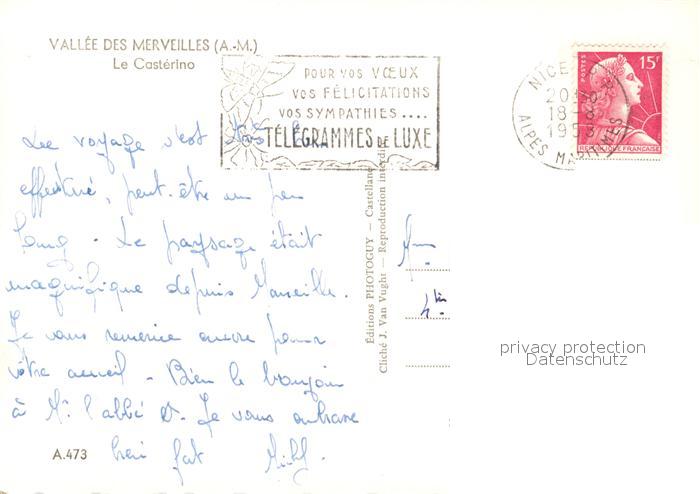 VALLÉE DES MERVEILLES (A.-M.)
Le Castérino
POUR VOS VŒUX
VOS FÉLICITATIONS
VOS SYMPATHIES....
TÉLÉGRAMMES DE LUXE
NICE
20
18-
ALPES MARITIMES
POSTES
15F
REPUBLIQUE FRANÇAISE
Le voyage s'est très bien
effectué, peut-être un peu
long - Le paysage était
magnifique depuis Marseille.
Je vous remercie encore pour
votre accueil - Bien le bonjour
à Mr l'abbé D. Je vous embrasse
bien fort
A.473
Éditions PHOTOGUY — Castellane
Cliché J. Van Vught — Reproduction interdite
privacy protection
Datenschutz